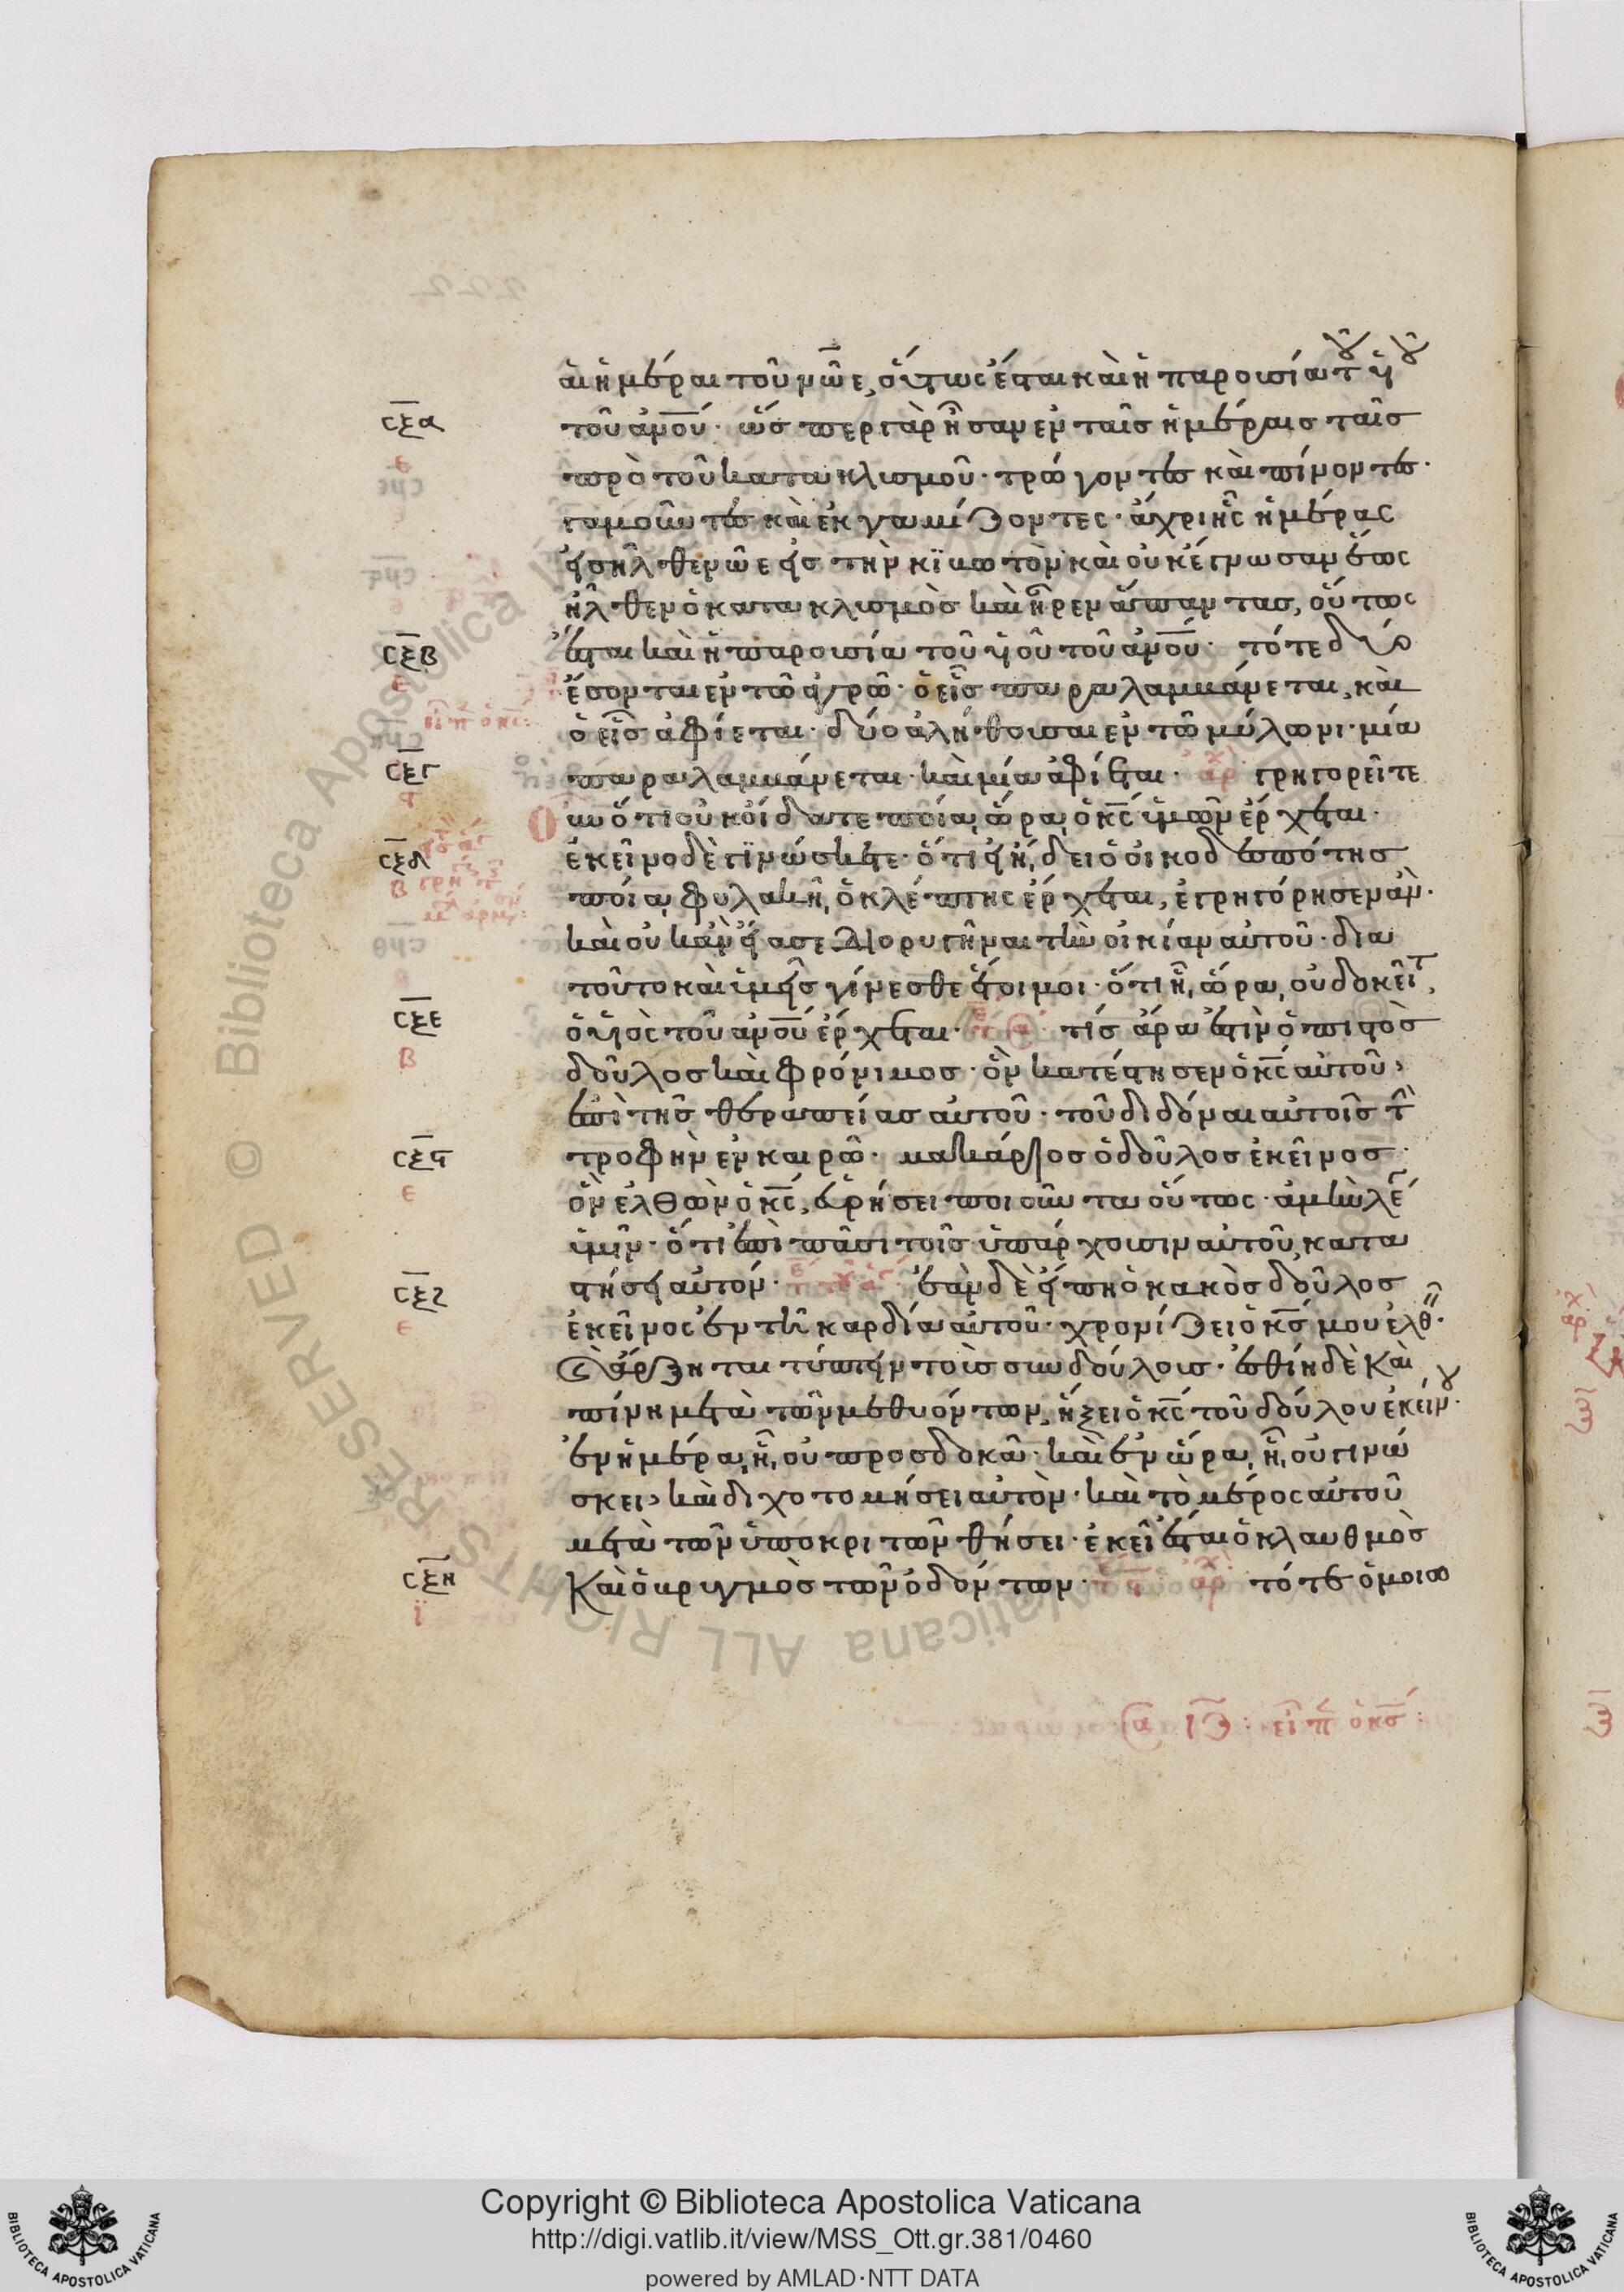 αἱ ἡμέραι τοῦ νῶε, οὕτως ἔσται καὶ ἡ παρουσία τοῦ υἱοῦ
σξα τοῦ ἀνου· ὥσπερ γὰρ ἦσαν ἐν ταῖς ἡμέραις ταῖς
ε πρὸ τοῦ κατακλισμοῦ· τρώγοντες καὶ πίνοντες·
γαμοῦντες καὶ ἐκγαμίζοντες· ἄχρι ἧς ἡμέρας
εἰσῆλθε νῶε εἰς τὴν κϊβωτὸν καὶ οὐκ ἔγνωσαν ἕως
ἦλθεν ὁ κατακλισμὸς καὶ ἦρεν ἅπαντας, οὕτως
σξβ ἔσται καὶ ἡ παρουσία τοῦ υἱοῦ τοῦ ἀνου· τότε δύο
ε ἔσονται ἐν τῶ ἀγρῶ· ὁ εἷς παραλαμβάνεται, καὶ
εἶπ ὁ κς: ὁ εἷς ἀφίεται· δύο ἀλήθουσαι ἐν τῶ μύλωνι· μία
σξγ παραλαμβάνεται καὶ μία ἀφίεται· ἀρχ γρηγορεῖτε
οὖν ὅτι οὐκ οἴδατε ποία ὥρα ὁ κς ὑμῶν ἔρχεται·
σξδ ἐκεῖνο δὲ γϊνώσκετε· ὅτι εἰ ἤδει ὁ οἰκοδεσπότης
β ποία φυλακῆ ὁ κλέπτης ἔρχεται, ἐγρηγόρησεν ἂν·
καὶ οὐκ ἂν εἴασε διορυγῆναι τὴν οἰκίαν αὐτοῦ· δια
τοῦτο καὶ ὑμεῖς γίνεσθε ἕτοιμοι· ὅτι ἧ ὥρα οὐ δοκεῖτ,
σξε ὁ υἱὸς τοῦ ἀνου ἔρχεται· τίς ἄρα ἐστὶν ὁ πιστὸς
β δοῦλος καὶ φρόνιμος· ὃν κατέστησεν ὁ κς αὐτοῦ,
ἐπὶ τῆς θεραπείας αὐτοῦ· τοῦ διδόναι αὐτοῖς τὴ
σξϛ τροφὴν ἐν καιρῶ· μακάριος ὁ δοῦλος ἐκεῖνος
ε ὃν ἐλθὼν ὁ κς, εὑρήσει ποιοῦντα οὕτως· ἀμὴν λέ
ὑμῖν· ὅτι ἐπὶ πᾶσι τοῖς ὑπάρχουσιν αὐτοῦ, κατα
σξζ στήσει αὐτόν· ἐὰν δὲ εἴπη ὁ κακὸς δοῦλος
ε ἐκεῖνος ἐν τῆ καρδία αὐτοῦ· χρονίζει ὁ κς μου ἐλθ·
καὶ ἄρξηται τύπτειν τοὺς συνδούλους· ἐσθίη δὲ καὶ
πίνη μετὰ τῶν μεθυόντων, ἥξει ὁ κς τοῦ δούλου ἐκείνου·
ἐν ἡμέρα ἧ οὐ προσδοκᾶ· καὶ ἐν ὥρα ἧ οὐ γινώ
σκει, καὶ διχοτομήσει αὐτὸν· καὶ τὸ μέρος αὐτοῦ
μετὰ τῶν ὑποκριτῶν θήσει· ἐκεῖ ἔσται ὁ κλαυθμὸς
σξη καὶ ὁ βρυγμὸς τῶν ὀδόντων· ἀρχ τότε ὁμοιω
ϊ
εἶπ ὁ κς:
Copyright © Biblioteca Apostolica Vaticana
http://digi.vatlib.it/view/MSS_Ott.gr.381/0460
powered by AMLAD·NTT DATA
BIBLIOTECA APOSTOLICA VATICANA
BIBLIOTECA APOSTOLICA VATICANA